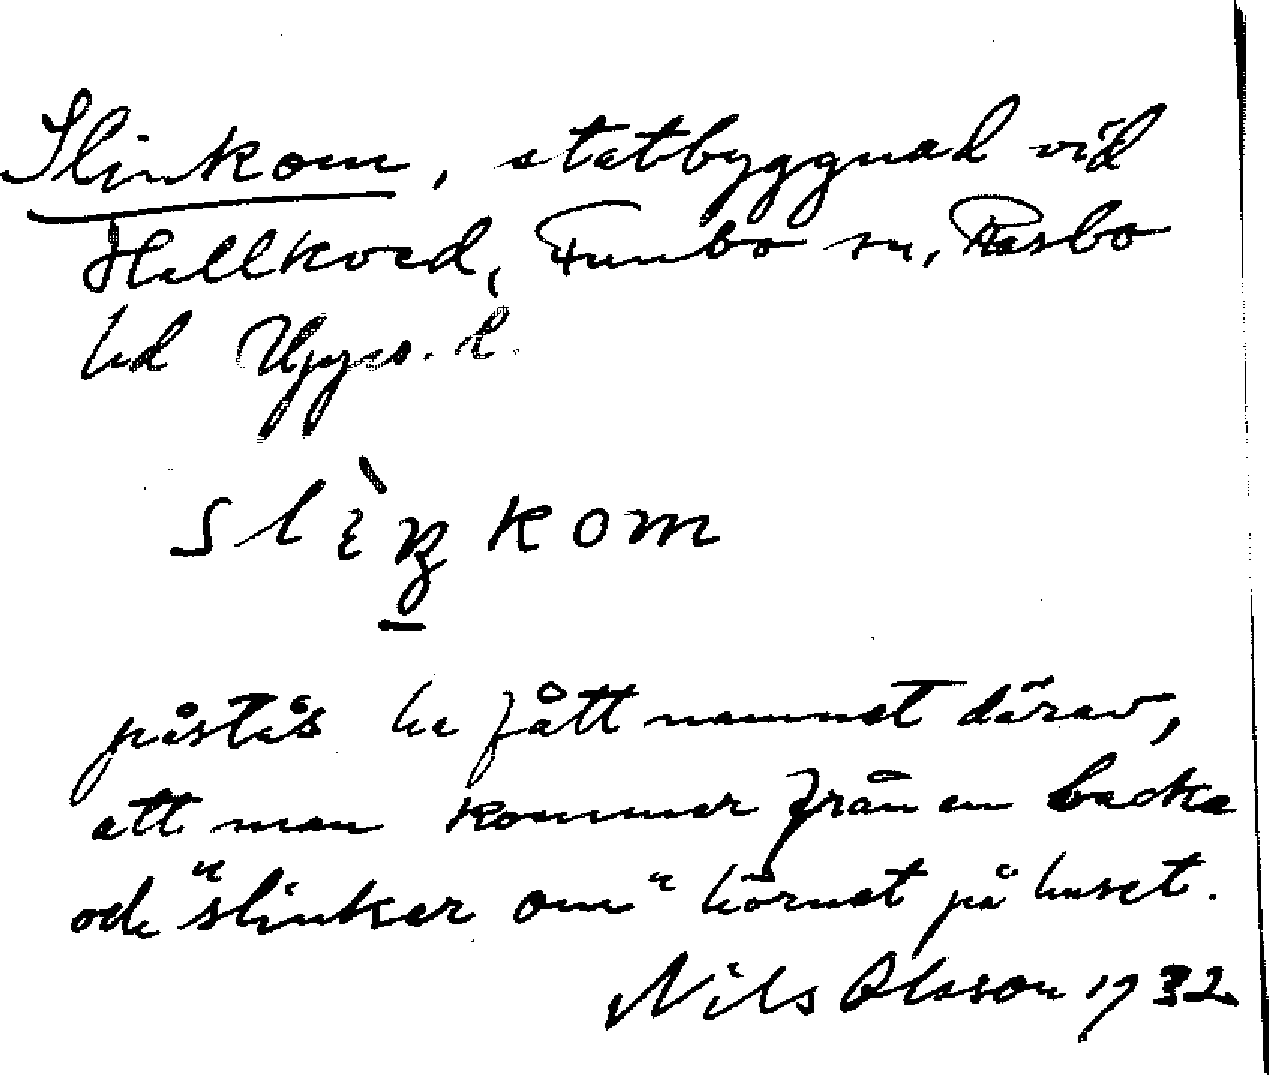 Slinkom, statbyggnad vid
Hallkved, Funbo sn, Rasbo
hd Upps. l.
slìŋkom
påstås ha fått namnet därav,
att man kommer från en backe
och "slinker om" hörnet på huset.
Nils Olsson 1932